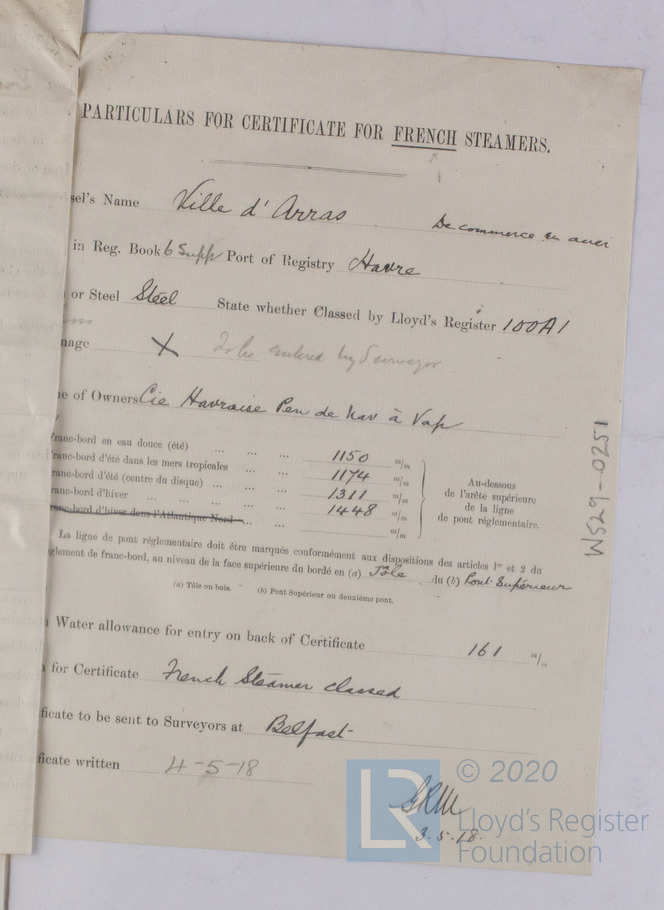 PARTICULARS FOR CERTIFICATE FOR FRENCH STEAMERS.
sel's Name Ville d'Arras
De commerce en
in Reg. Book 6 Supp Port of Registry Havre
or Steel Steel State whether Classed by Lloyd's Register 100A1
nage X To be entered by Surveyor
e of Owners Cie Havraise Pen de Nav à Vap
ranc-bord en eau douce (été) ... ... ... 1150 m/m
ranc-bord d'été dans les mers tropicales ... ... 1174 m/m
ranc-bord d'été (centre du disque) ... ... ... 1311 m/m
ranc-bord d'hiver ... ... ... ... 1448 m/m
ranc-bord d'hiver dans l'Atlantique Nord ... ... m/m
Au-dessous
de l'arête supérieure
de la ligne
de pont réglementaire.
La ligne de pont réglementaire doit être marquée conformément aux dispositions des articles 1er et 2 du
glement de franc-bord, au niveau de la face supérieure du bordé en (a) Tôle du (b) Pont Supérieur
(a) Tôle ou bois. (b) Pont Supérieur ou deuxième pont.
Water allowance for entry on back of Certificate 161 m/m
for Certificate French Steamer classed
ficate to be sent to Surveyors at Belfast
ficate written 4-5-18
GRM
3.5.18.
W529-0251
LR
© 2020
Lloyd's Register
Foundation